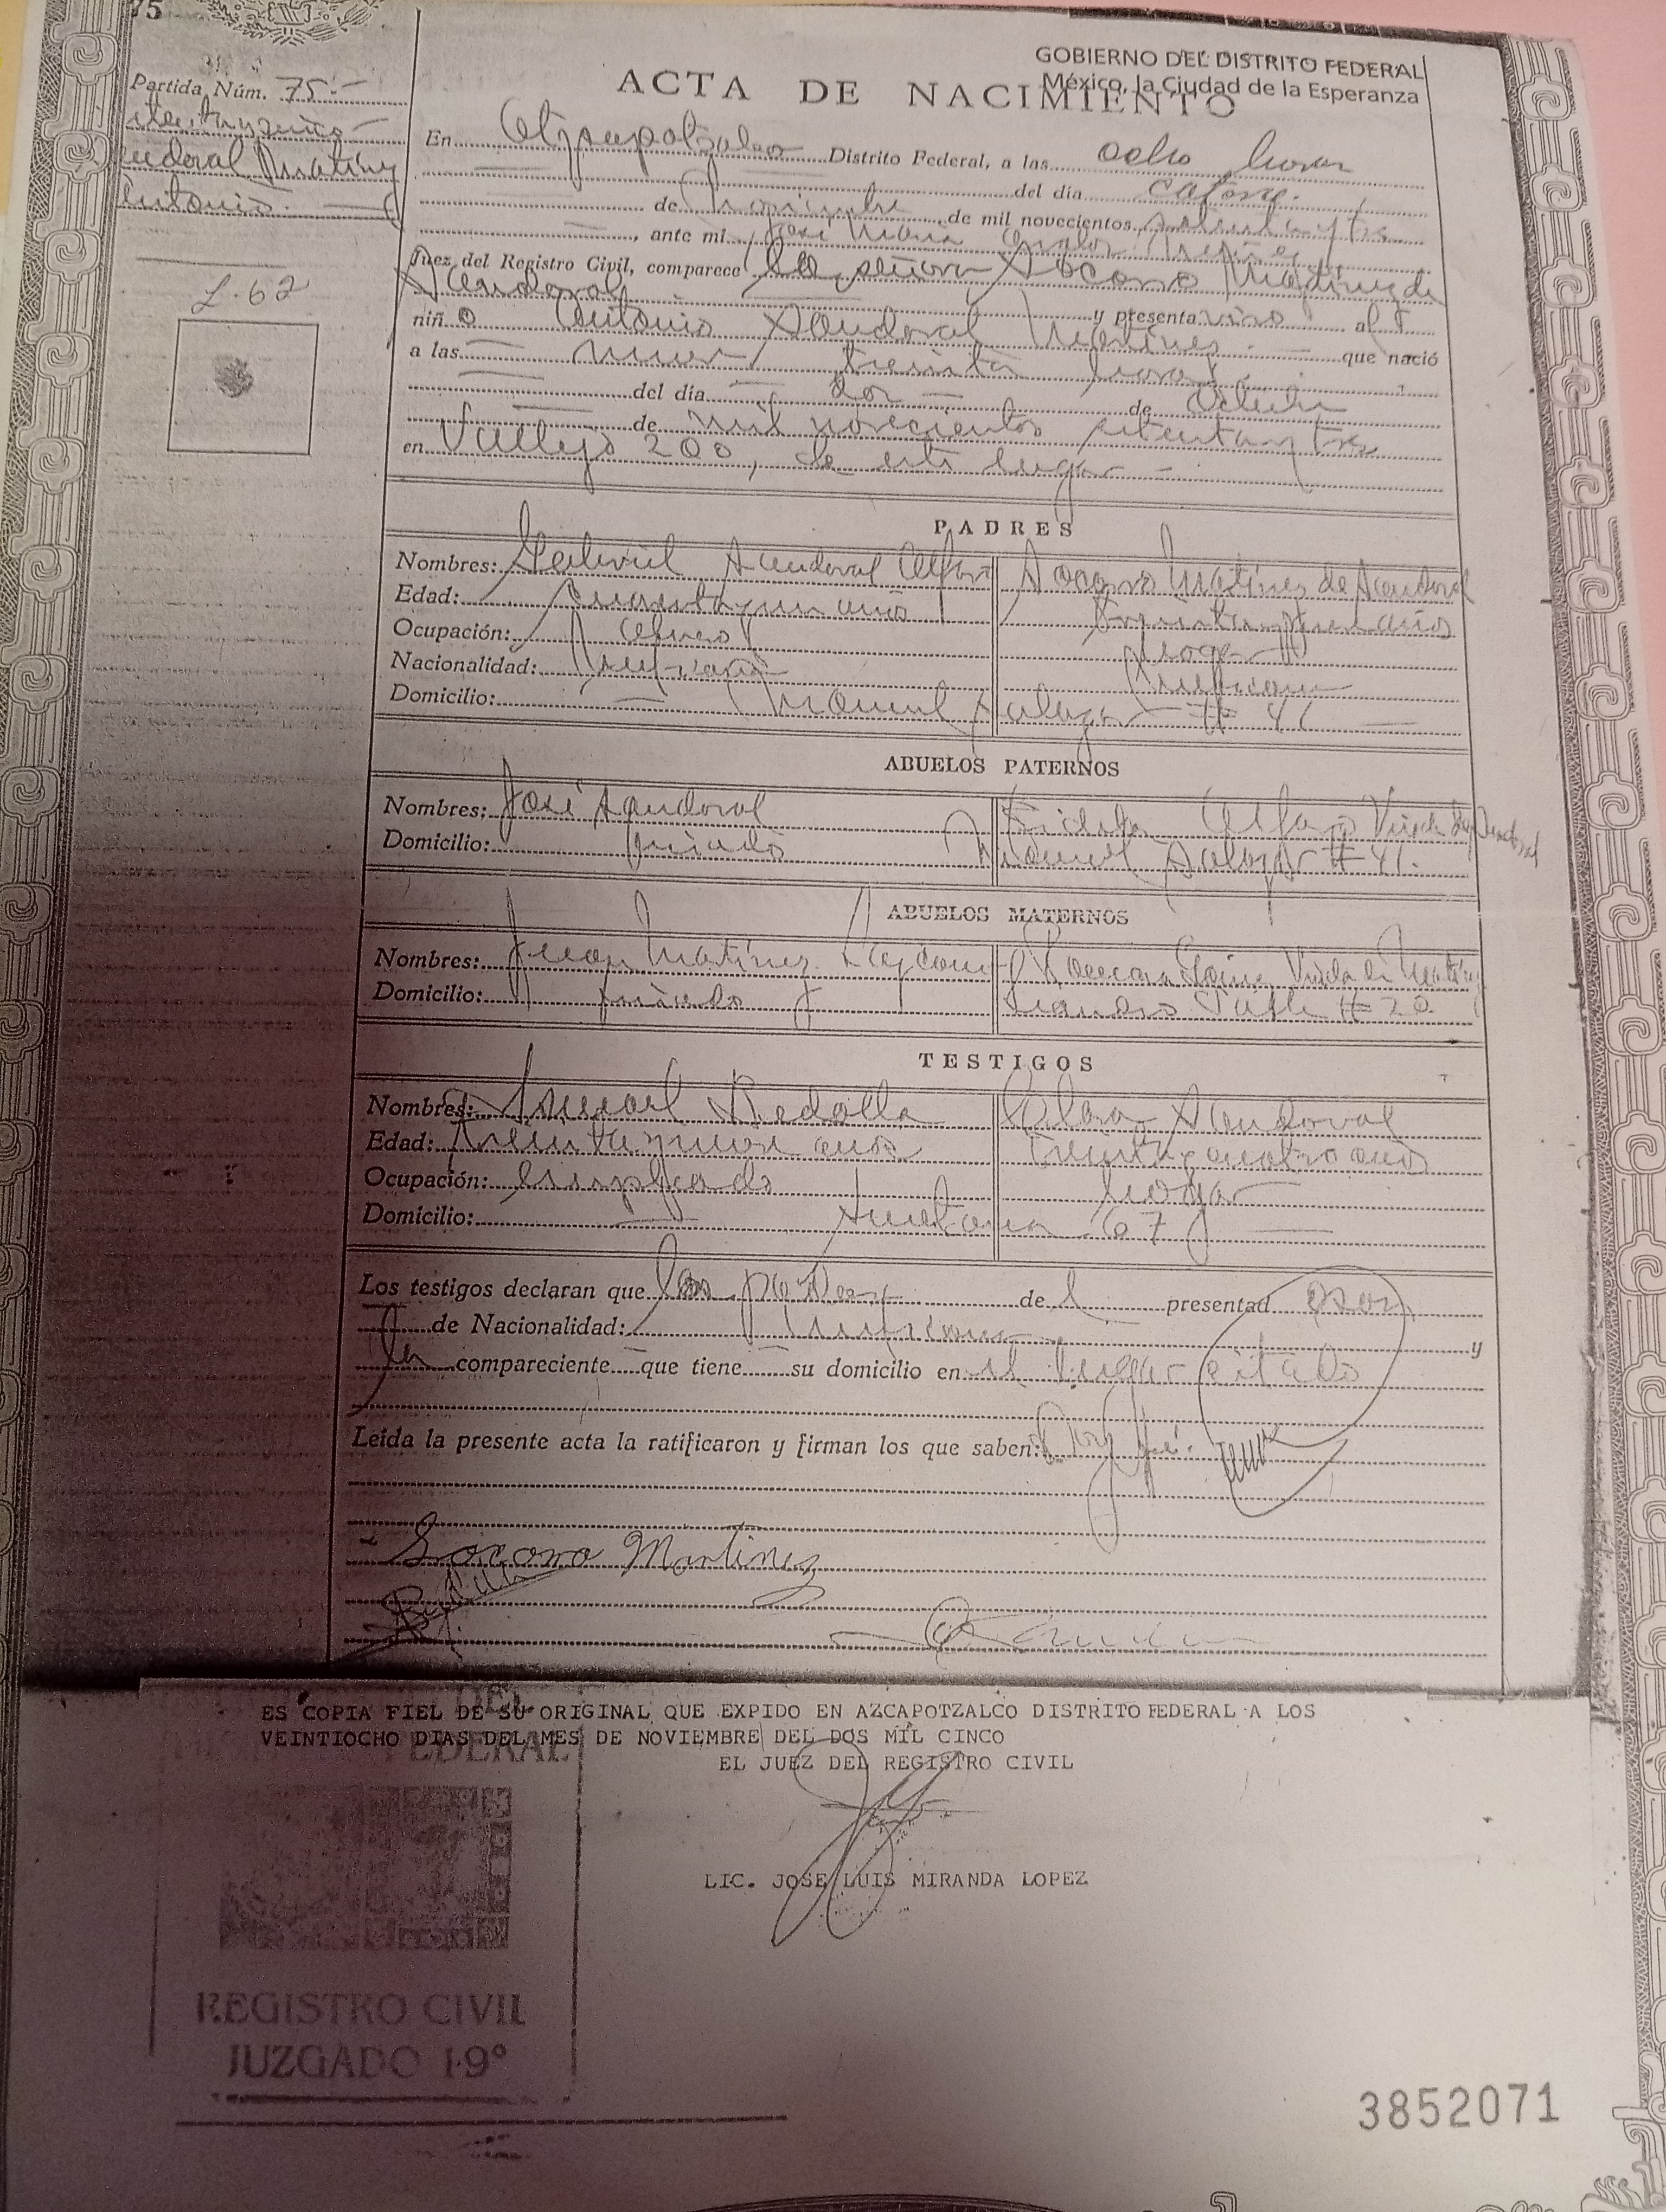 75
GOBIERNO DEL DISTRITO FEDERAL
México, la Ciudad de la Esperanza
ACTA DE NACIMIENTO
Partida Núm. 75
En Atzcapotzalco Distrito Federal, a las ocho horas
del día catorce
de Noviembre de mil novecientos setentaytres
, ante mi José Maria
Juez del Registro Civil, comparece la señora Socorro Martinez de
Sandoval
y presenta vivo al
niño Antonio Sandoval Martinez que nació
a las nueve treinta horas
del día dos de Octubre
de mil novecientos setentaytres
en Vallejo 200, de este lugar
L-62
PADRES
Nombres: Gabriel Sandoval Alfaro Socorro Martinez de Sandoval
Edad: cuarentayun años años
Ocupación: obrero hogar
Nacionalidad: Mexicana Mexicana
Domicilio: Manuel Salazar # 41
ABUELOS PATERNOS
Nombres: José Sandoval Alfaro Viuda de Sandoval
Domicilio: finado Manuel Salazar # 41.
ABUELOS MATERNOS
Nombres: Juan Martinez Viuda de Martinez
Domicilio: finado Leandro Valle # 20
TESTIGOS
Nombres: Ismael Redolla Clara Sandoval
Edad: treintaynueve años treintaycuatro años
Ocupación: empleado hogar
Domicilio: 67
Los testigos declaran que los padres del presentado son
de Nacionalidad: Mexicana y
la compareciente que tiene su domicilio en el lugar citado
Leída la presente acta la ratificaron y firman los que saben: Doy fé.
Socorro Martinez
ES COPIA FIEL DE SU ORIGINAL QUE EXPIDO EN AZCAPOTZALCO DISTRITO FEDERAL A LOS
VEINTIOCHO DIAS DEL MES DE NOVIEMBRE DEL DOS MIL CINCO
EL JUEZ DEL REGISTRO CIVIL
LIC. JOSE LUIS MIRANDA LOPEZ
DEL
FEDERAL
REGISTRO CIVIL
JUZGADO 19°
3852071